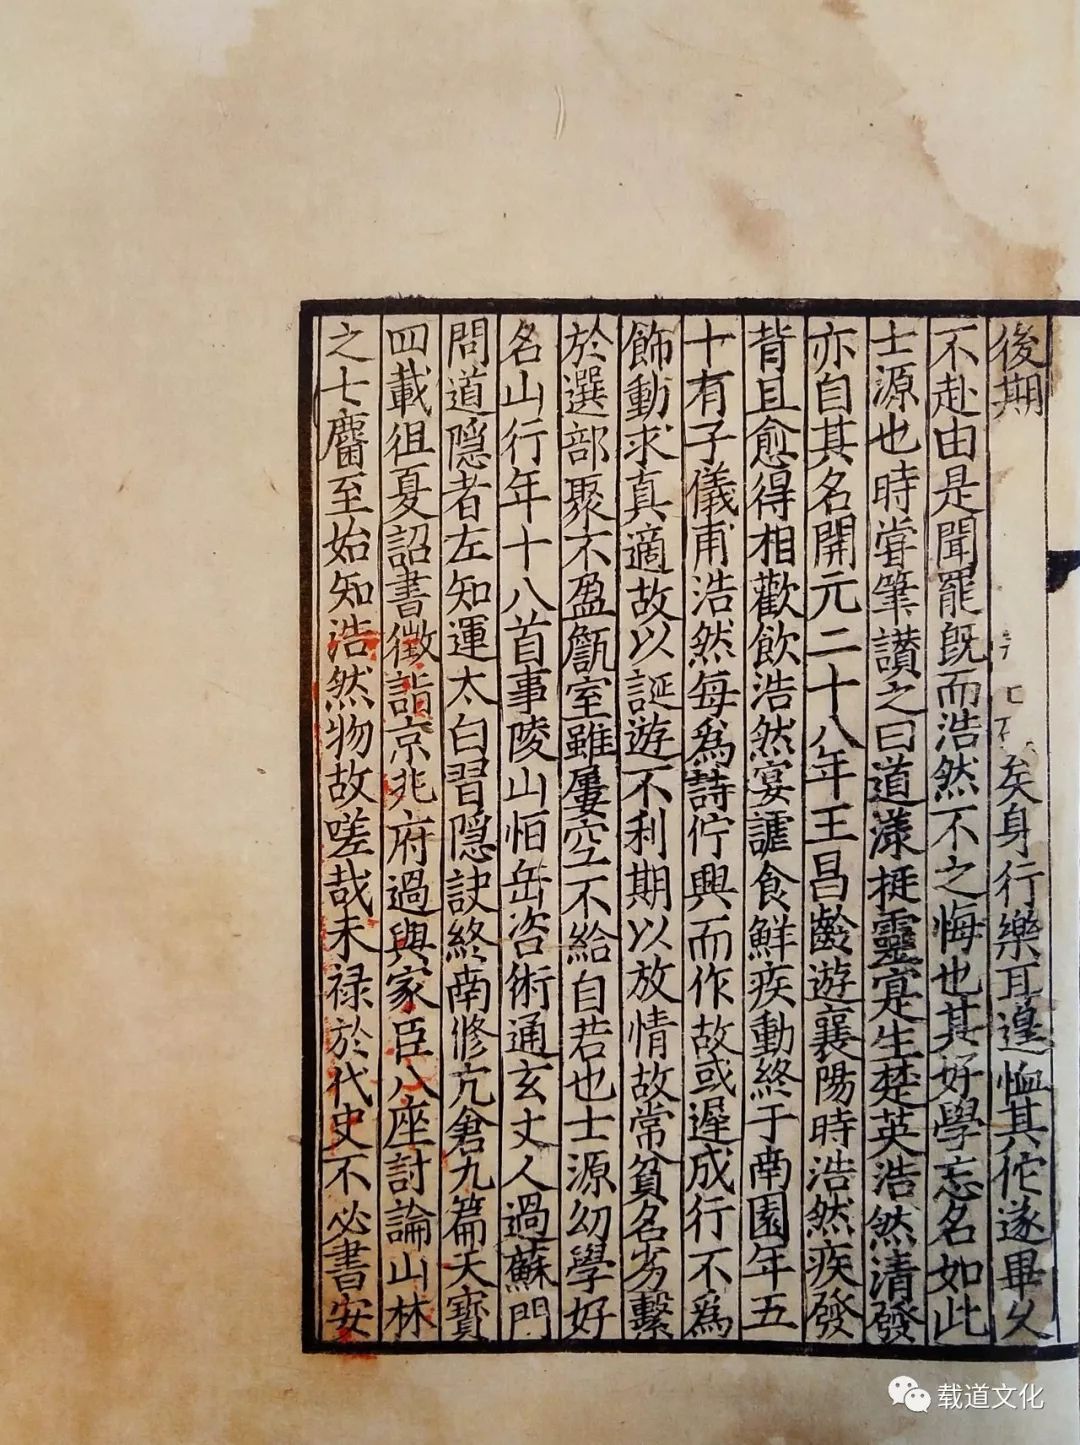 後期矣身行樂耳遑恤其佗遂畢久
不赴由是聞罷旣而浩然不之悔也其好學忘名如此
士源也時嘗筆讃之曰道漾挺靈寔生楚英浩然清發
亦自其名開元二十八年王昌齡遊襄陽時浩然疾發
背且愈得相歡飲浩然宴謔食鮮疾動終于南園年五
十有子儀甫浩然每為詩佇興而作故或遲成行不為
飾動求真適故以誕遊不利期以放情故常貧名劣繫
於選部聚不盈甔室雖屢空不給自若也士源幼學好
名山行年十八首事陵山怕岳咨術通玄丈人過蘇門
問道隱者左知運太白習隱訣終南修亢倉九篇天寶
四載徂夏詔書徵詣京兆府過與家臣八座討論山林
之士麕至始知浩然物故嗟哉未禄於代史不必書安
载道文化